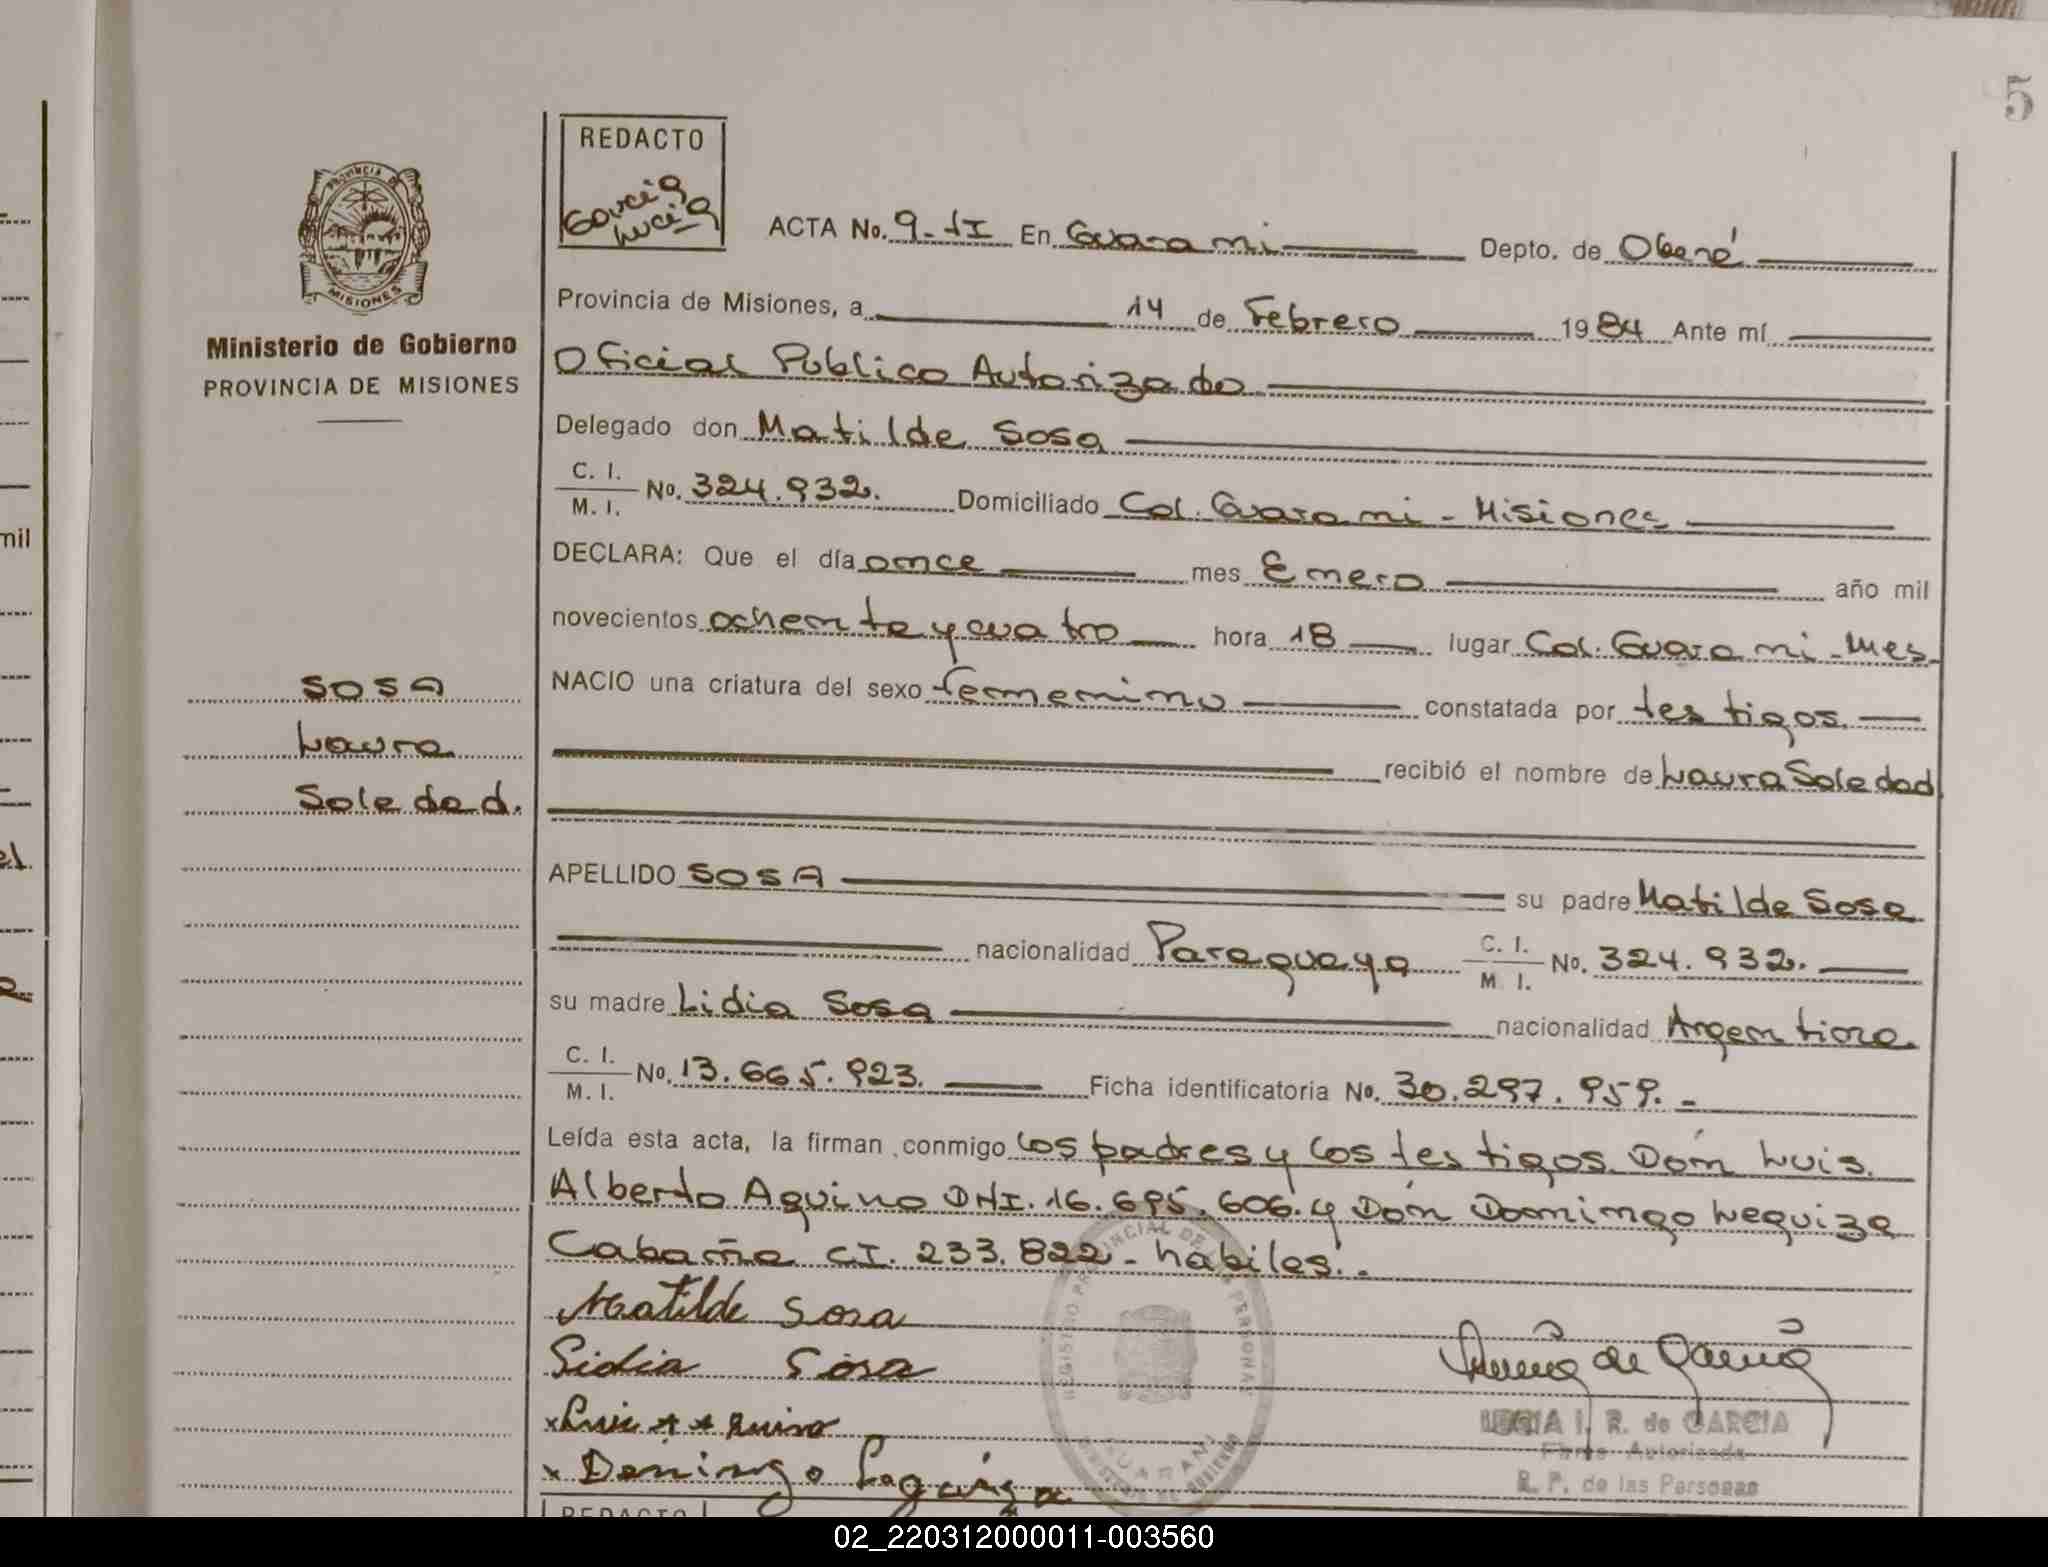 5
REDACTO
Garcia
Lucia
ACTA No. 9-tI En Guarani Depto. de Oberá
PROVINCIA DE
MISIONES
Provincia de Misiones, a 14 de Febrero 1984 Ante mí
Ministerio de Gobierno
PROVINCIA DE MISIONES
Oficial Publico Autorizado
Delegado don Matilde Sosa
C. I. / M. I. No. 324.932. Domiciliado Col. Guarani - Misiones
mil
DECLARA: Que el día once mes Enero año mil
novecientos ochenta y cuatro hora 18 lugar Col. Guarani - Mnes.
SOSA
Laura
Soledad.
NACIO una criatura del sexo femenino constatada por testigos.
recibió el nombre de Laura Soledad
APELLIDO SOSA su padre Matilde Sosa
nacionalidad Paraguaya C. I. / M. I. No. 324.932.
su madre Lidia Sosa nacionalidad Argentina
C. I. / M. I. No. 13.665.923. Ficha identificatoria No. 30.297.959. -
Leída esta acta, la firman conmigo los padres y los testigos Dón Luis
Alberto Aquino DNI. 16.695.606. y Dón Domingo Leguiza
Cabaña CI. 233.822 - habiles. -
Matilde Sosa
Lidia Sosa
Domingo Leguiza
REGISTRO PROVINCIAL DE LAS PERSONAS
GUARANI
MINISTERIO DE GOBIERNO
Lucia de Garcia
LUCIA I. R. de GARCIA
Firma Autorizada
R. P. de las Personas
REDACTO
02_220312000011-003560